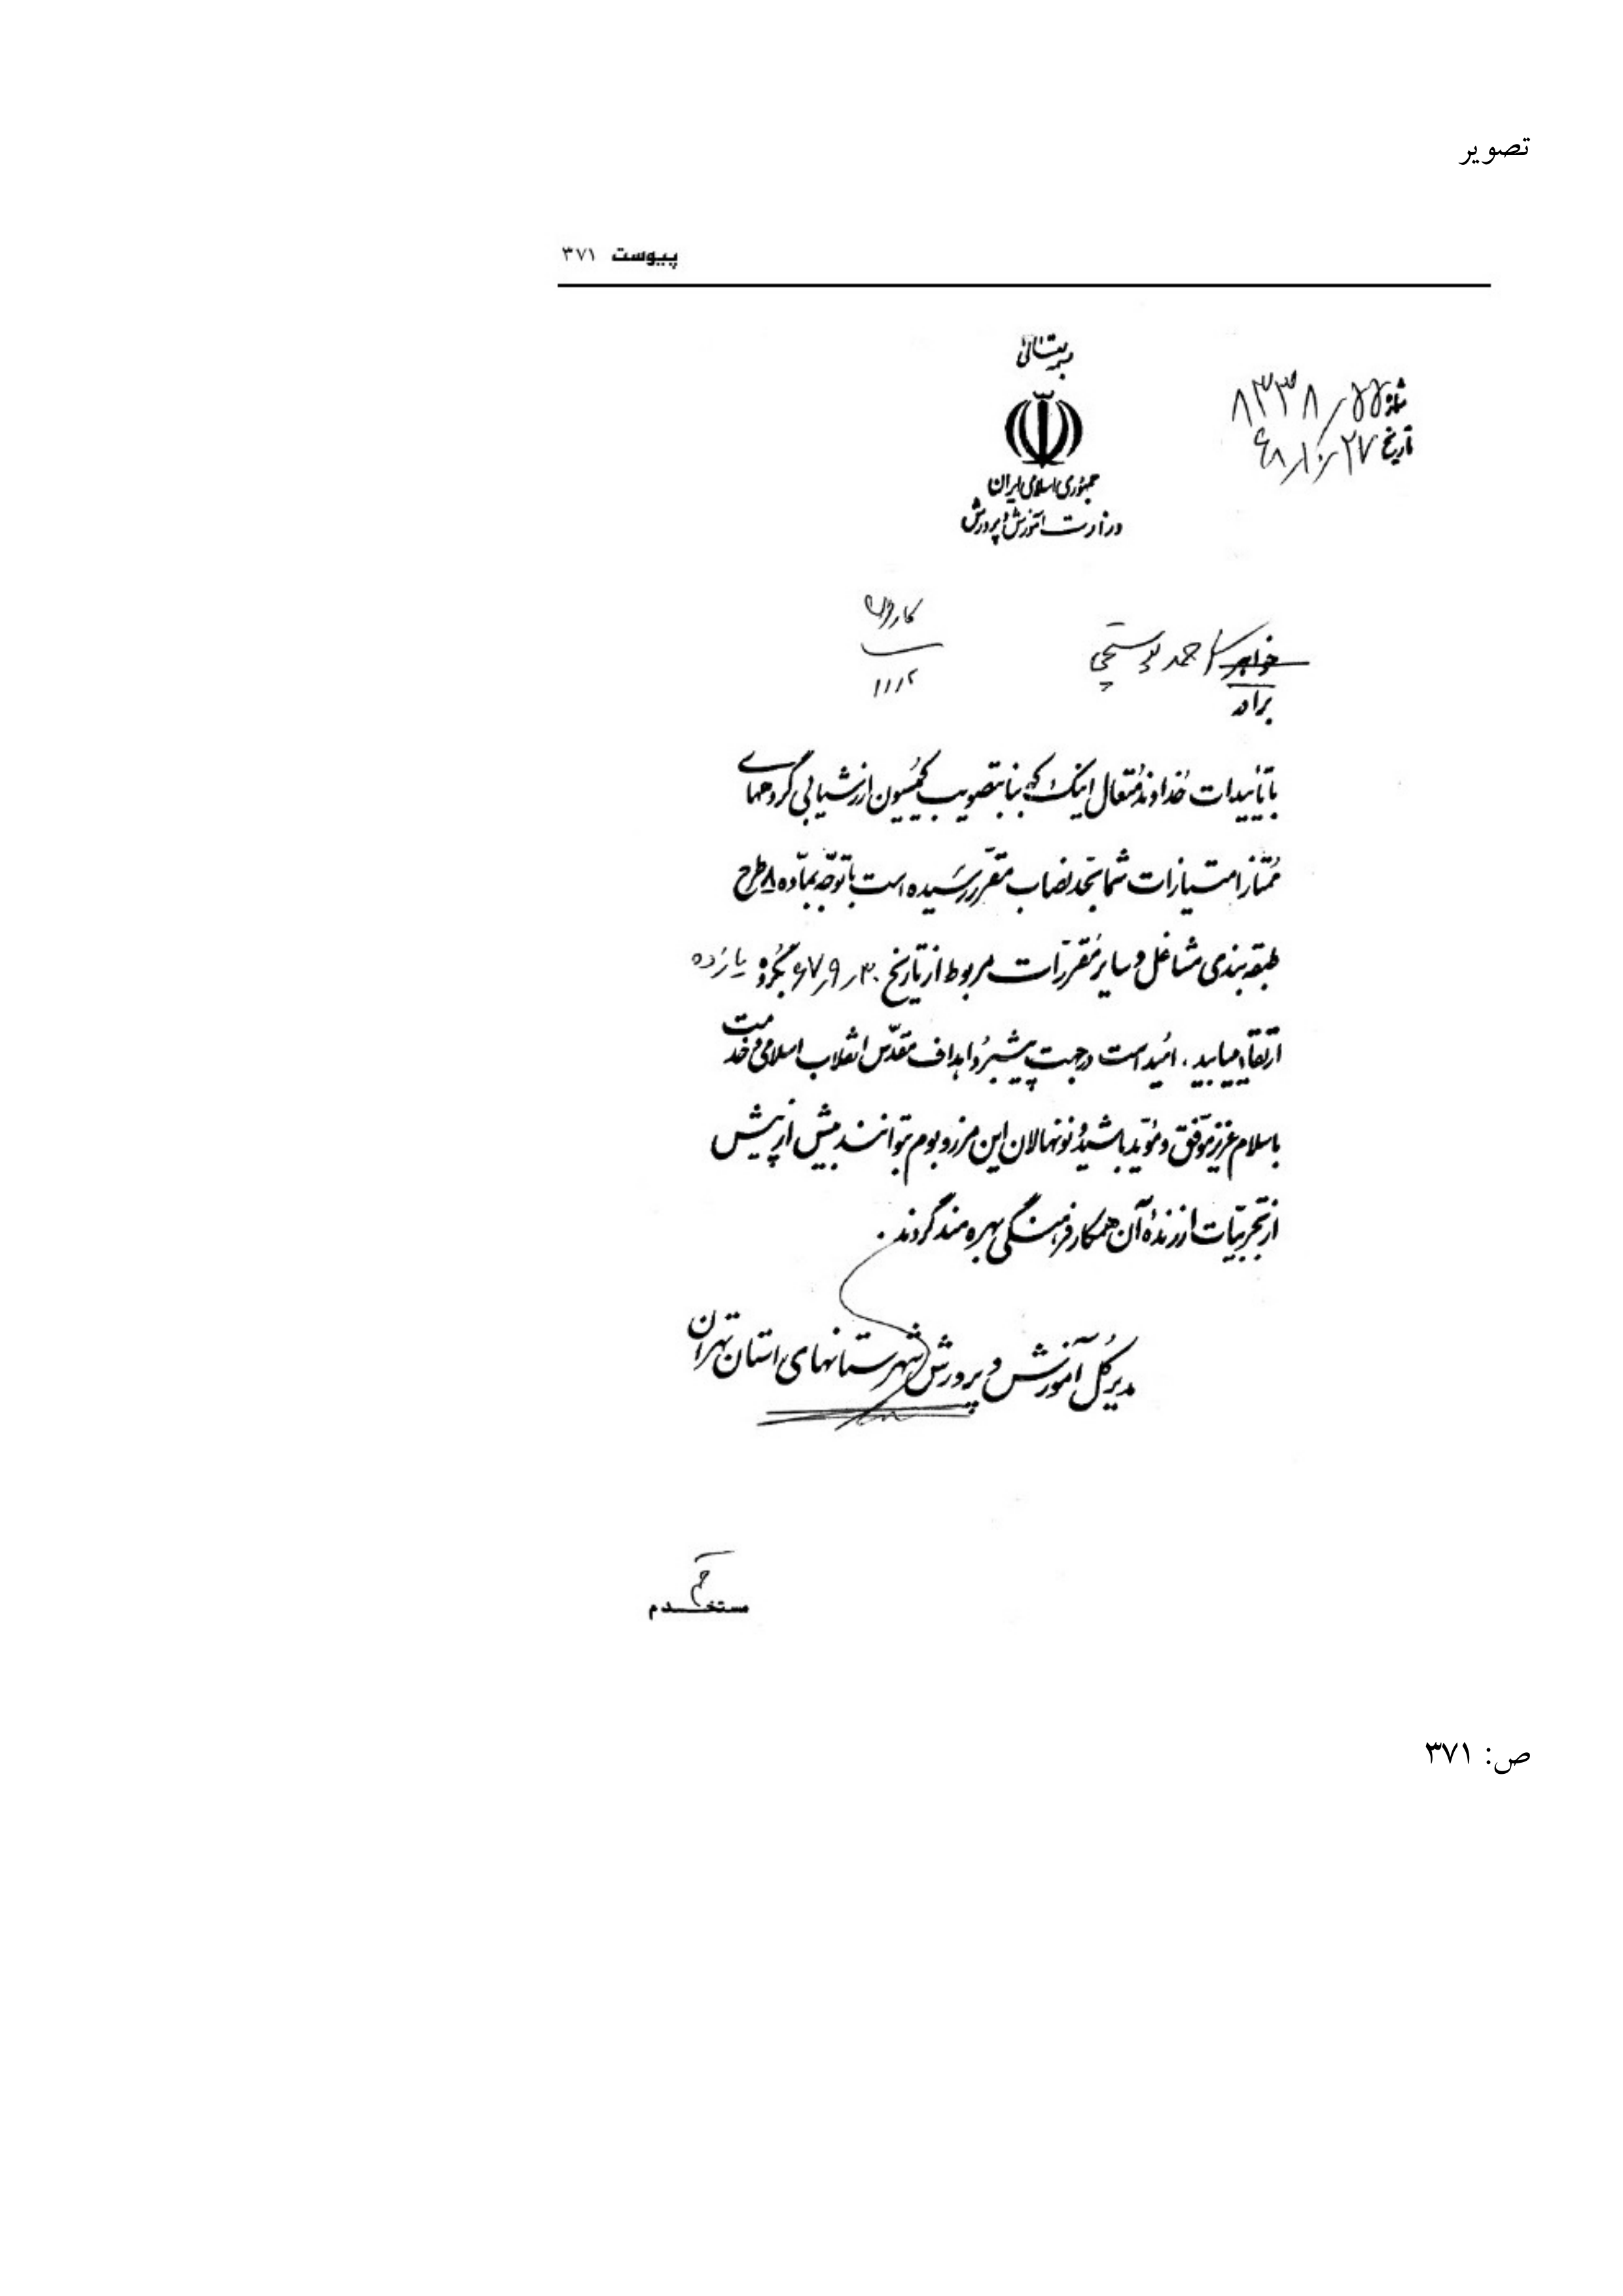 تصویر
پیوست ۳۷۱
بسمه تعالی
شماره ۸۳۳۸/۵۵
تاریخ ۶۸/۱۰/۲۷
جمهوری اسلامی ایران
وزارت آموزش و پرورش
۱۱/۲
خواهر احمد پوستچی
برادر
با تأییدات خداوند متعال اینک که بنا بتصویب کمیسیون ارزشیابی گروههای
ممتاز امتیازات شما بحد نصاب مقرر رسیده است با توجه بماده ۸ طرح
طبقه بندی مشاغل و سایر مقررات مربوط از تاریخ ۶۷/۹/۳۰ بگروه یازده
ارتقاء مییابید. امید است در جهت پیشبرد اهداف مقدس انقلاب اسلامی و خدمت
باسلام عزیز موفق و مؤید باشید و نونهالان این مرز و بوم بتوانند بیش از پیش
از تجربیات ارزنده آن همکار فرهنگی بهره مند گردند.
مدیر کل آموزش و پرورش شهرستانهای استان تهران
مستخدم
ص: ۳۷۱